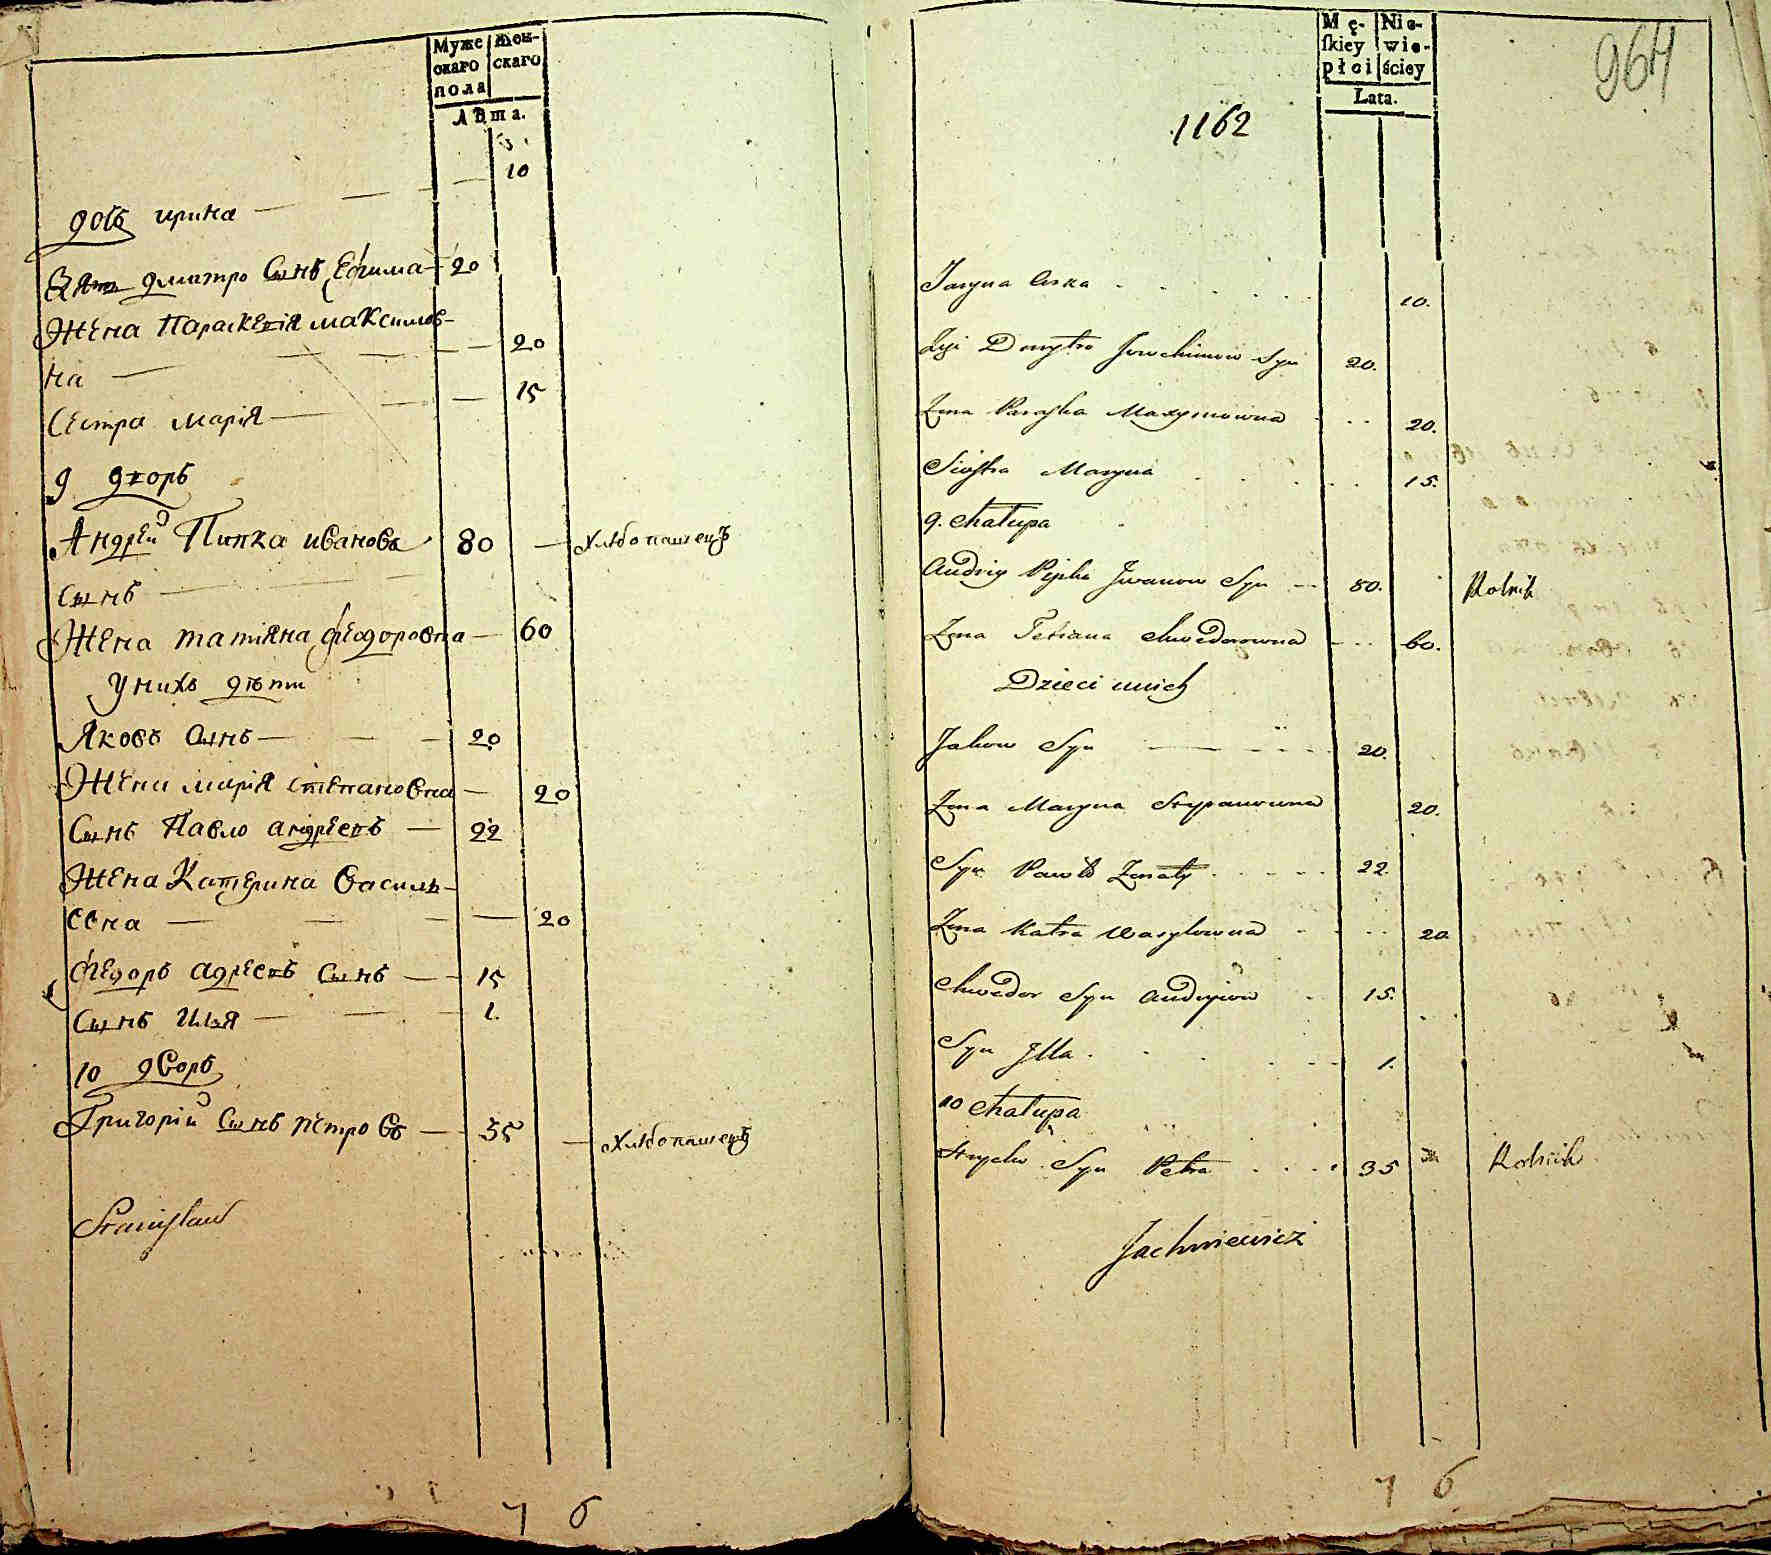 Муже Жен-
скаго скаго
пола
Лѣта.
10
дочь ирина
Зять дмитро Сынъ Ефима 20
Жена Параскевія максимов-
на 20
Сестра марія 15
9 дворъ
Андрей Пипка ивановъ 80 Хлѣбопашецъ
Сынъ
Жена татіяна феодоровна 60
У нихъ дѣти
Яковъ сынъ 20
Жена марія степановна 20
Сынъ Павло андреевъ 22
Жена Катерина василь-
евна 20
Федоръ адреевъ сынъ 15
Сынъ Илья 1.
10 дворъ
Григорій Сынъ петровъ 35 Хлѣбопашецъ
Stanisław
7 6
Mę- Nie-
skiey wie-
płci ściey
Lata.
964
1162
Jaryna Curka 10.
Zyć Dmytro Jowchimow Syn 20.
Żona Paraska Maxymowna 20.
Siostra Maryna 15.
9. Chałupa
Andriy Pipka Iwanow Syn 80. Rolnik
Żona Tetiana Chwedorowna 60.
Dzieci u nich
Jakow Syn 20.
Żona Maryna Stepanowna 20.
Syn Pawło Żonaty 22.
Żona Katra Wasylowna 20
Chwedor Syn Andryiow 15.
Syn Illa 1.
10 Chałupa
Hryćko Syn Petra 35 Rolnik
Jachniewicz
7 6